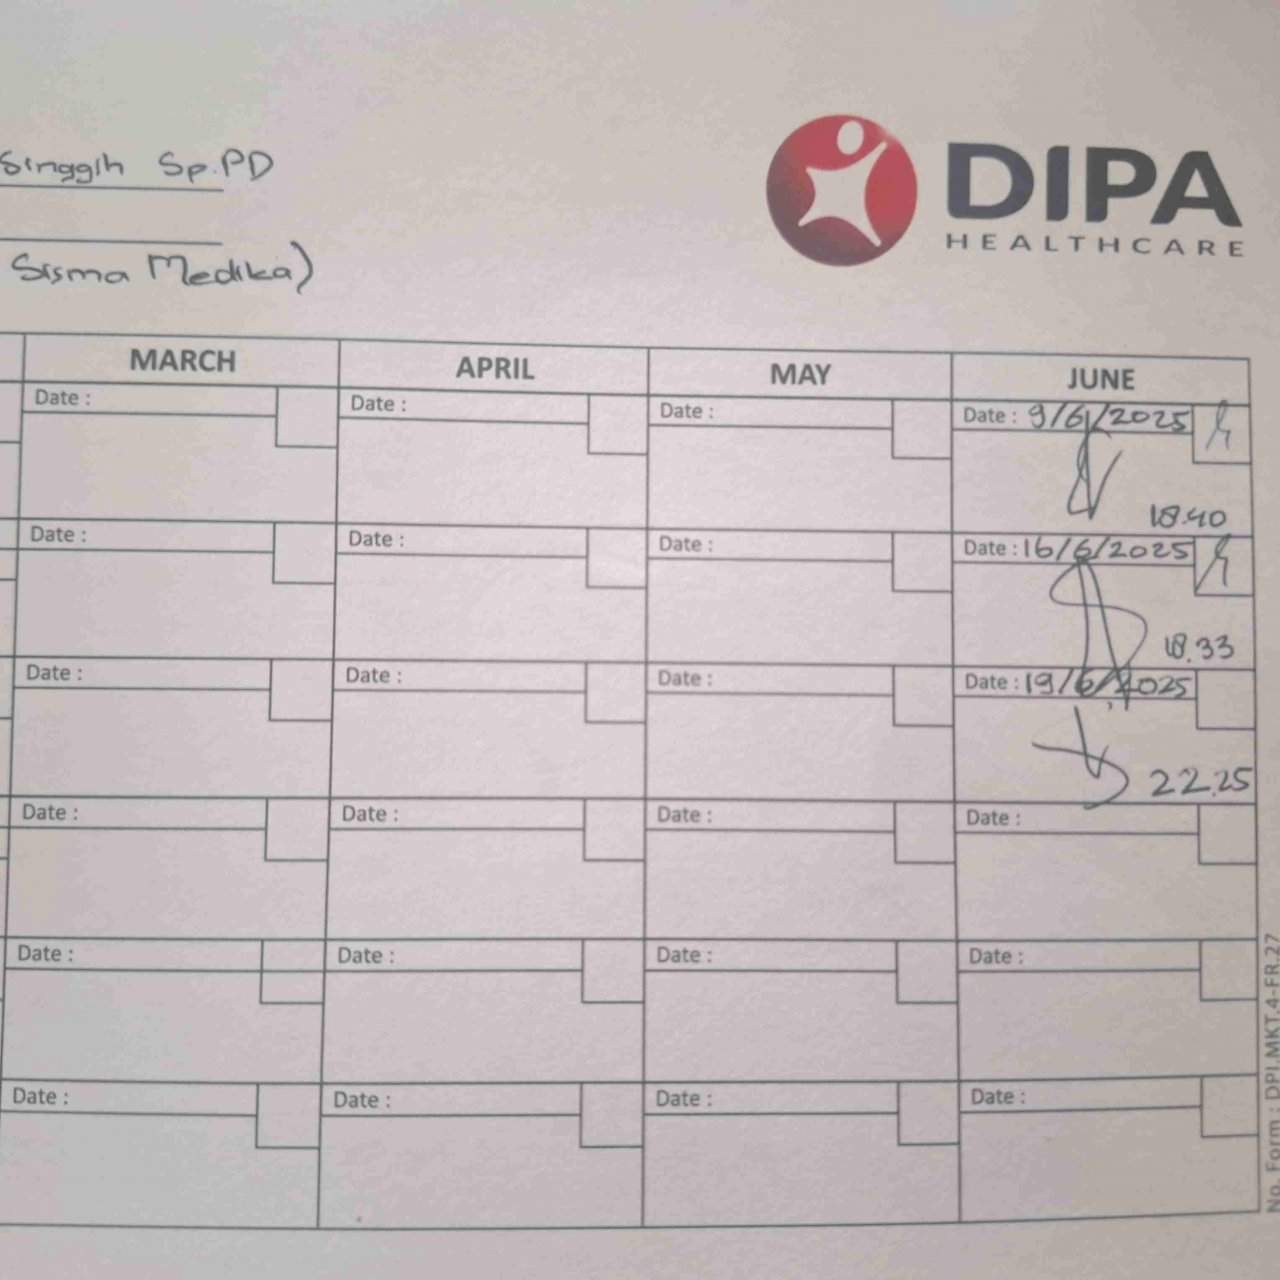 Singgih Sp.PD
Sisma Medika)
DIPA
HEALTHCARE
MARCH APRIL MAY JUNE
Date : Date : Date : Date : 9/6/2025
18.40
Date : Date : Date : Date : 16/6/2025
18.33
Date : Date : Date : Date : 19/6/2025
22.25
Date : Date : Date : Date :
Date : Date : Date : Date :
Date : Date : Date : Date :
No. Form : DPI.MKT.4-FR.27